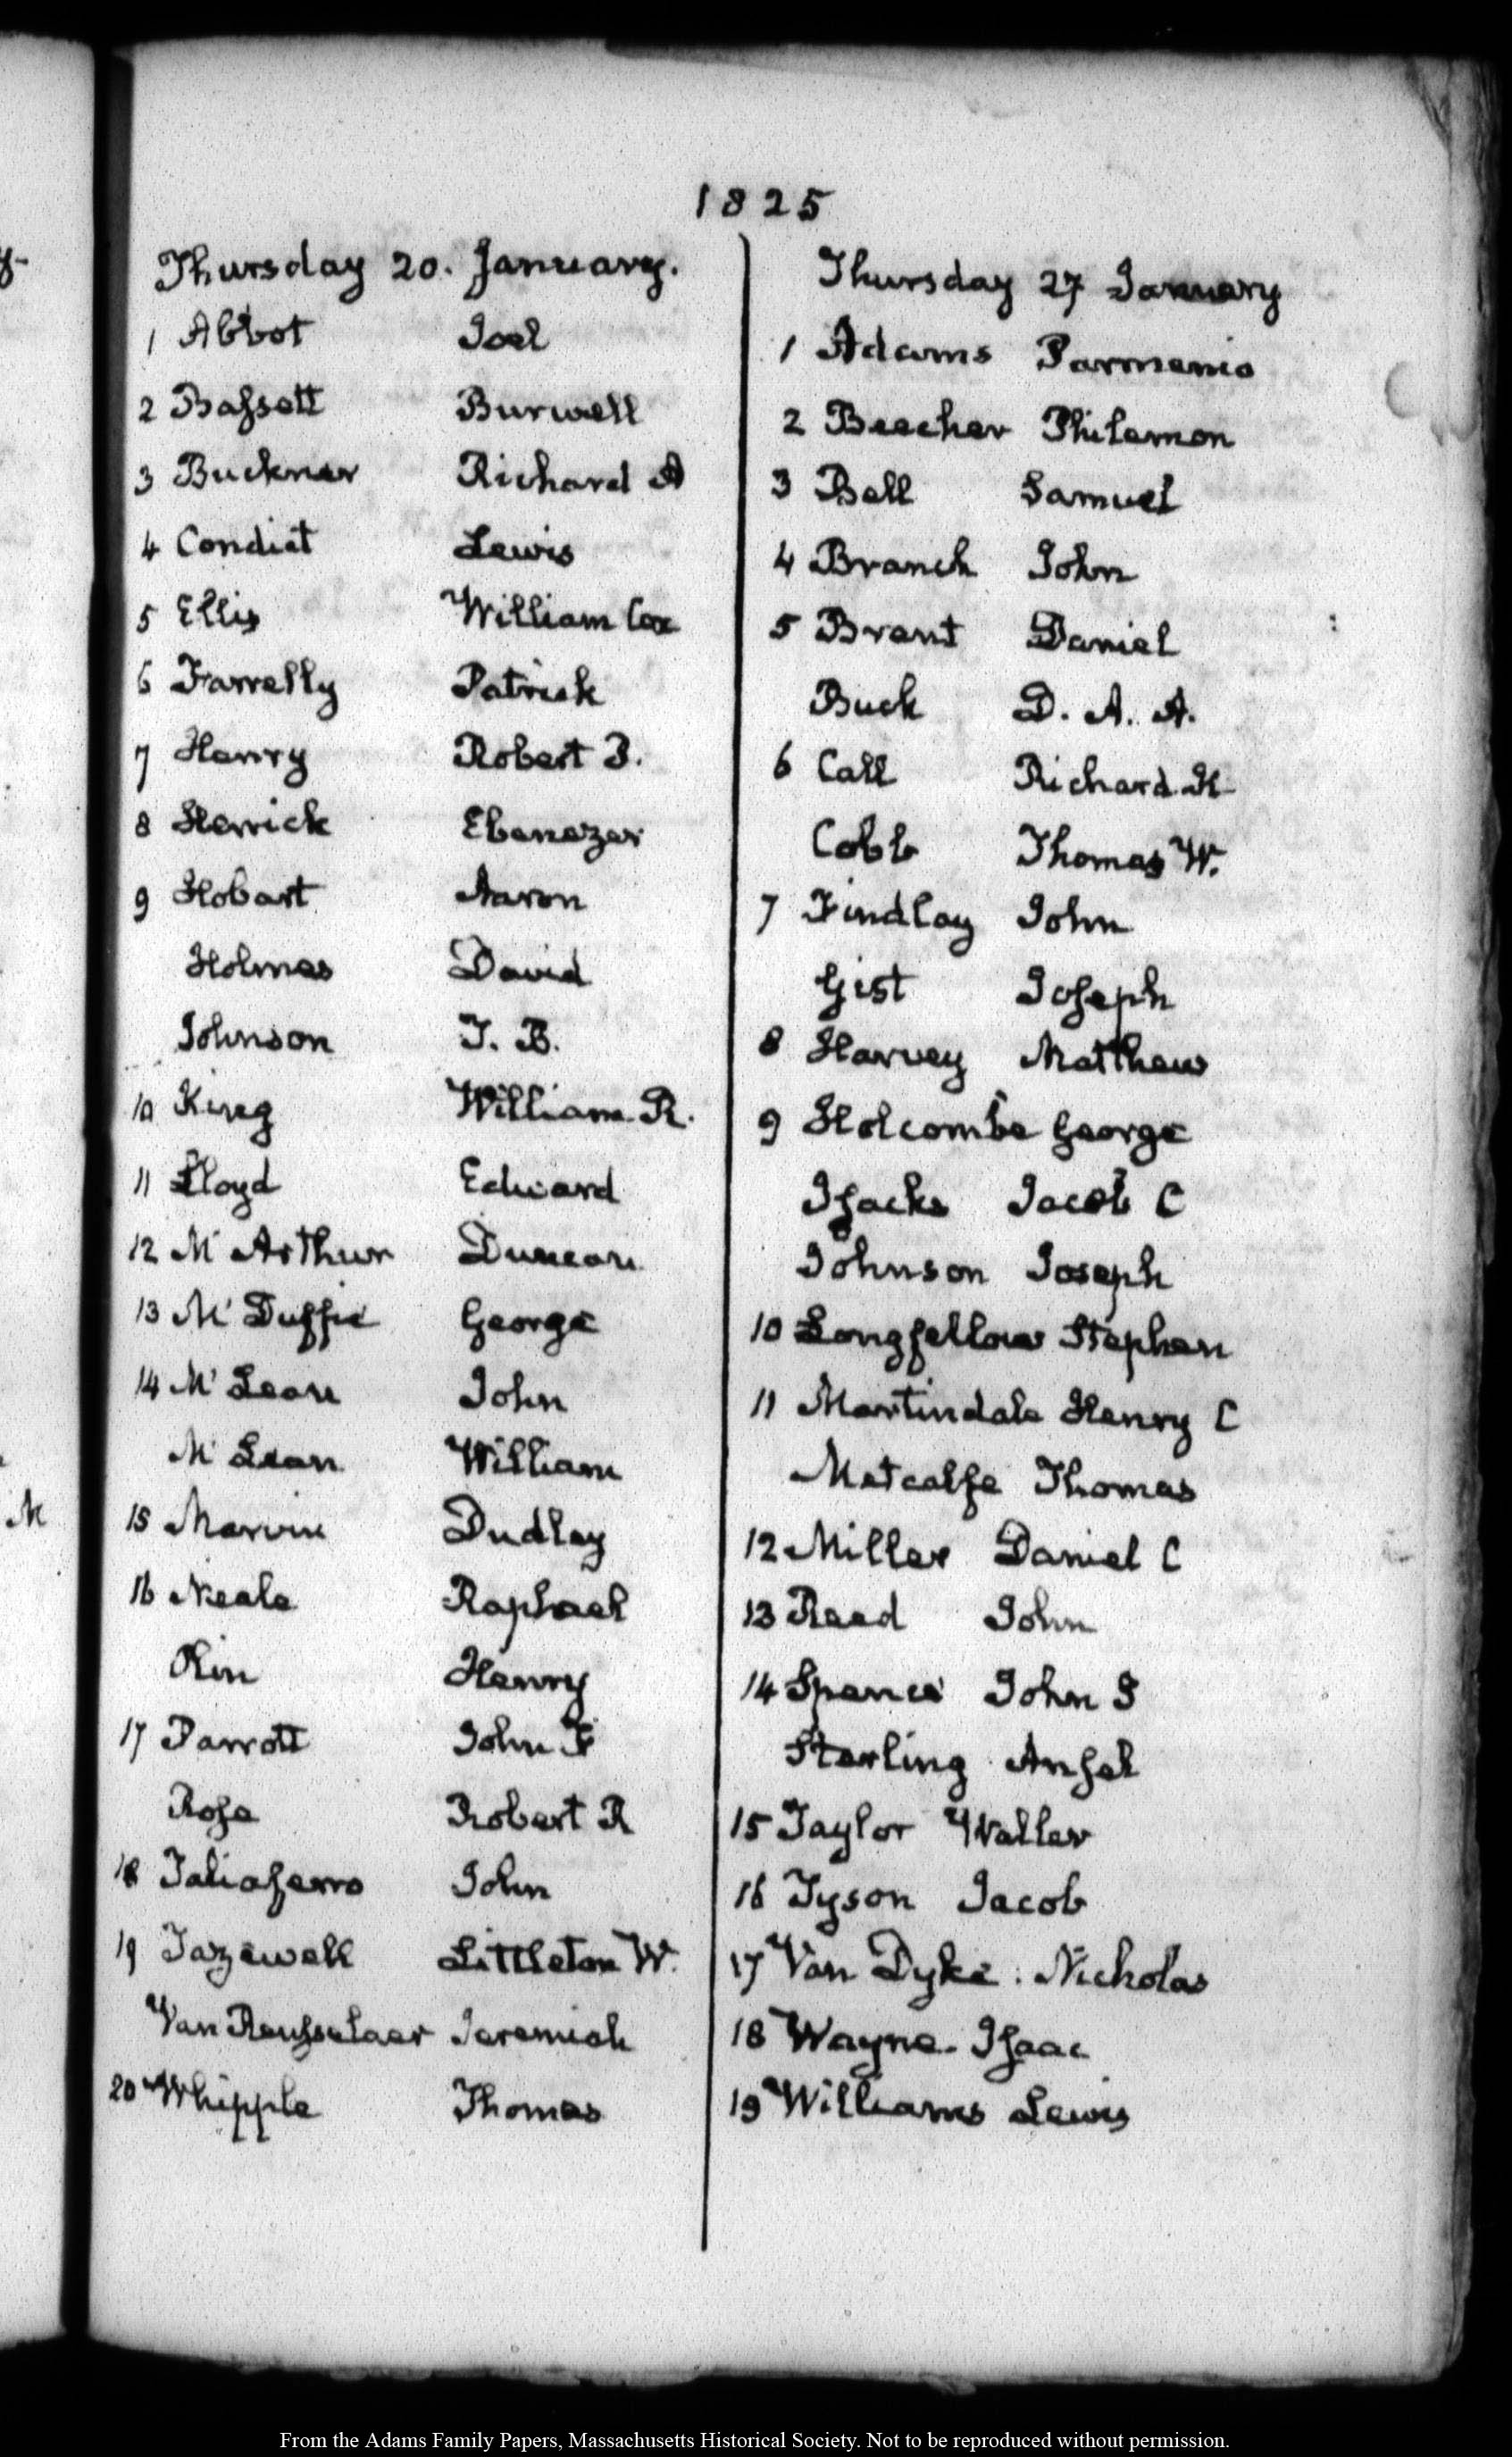 1825
Thursday 20. January.
1 Abbot Joel
2 Bassett Burwell
3 Buckner Richard A
4 Condict Lewis
5 Ellis William Cox
6 Farrelly Patrick
7 Henry Robert P.
8 Herrick Ebenezer
9 Hobart Aaron
Holmes David
Johnson J. B.
10 King William R.
11 Lloyd Edward
12 Mc Arthur Duncan
13 Mc Duffie George
14 Mc Lean John
Mc Lean William
15 Marvin Dudley
16 Neale Raphael
Olin Henry
17 Parrott John F
Rose Robert R
18 Taliaferro John
19 Tazewell Littleton W.
Van Rensselaer Jeremiah
20 Whipple Thomas
Thursday 27 January
1 Adams Parmenio
2 Beecher Philemon
3 Bell Samuel
4 Branch John
5 Brent Daniel
Buck D. A. A.
6 Call Richard K
Cobb Thomas W.
7 Findlay John
Gist Joseph
8 Harvey Matthew
9 Holcombe George
Isacks Jacob C
Johnson Joseph
10 Longfellow Stephen
11 Martindale Henry C
Metcalfe Thomas
12 Miller Daniel C
13 Reed John
14 Spence John S
Sterling Ansel
15 Taylor Waller
16 Tyson Jacob
17 Van Dyke: Nicholas
18 Wayne. Isaac
19 Williams Lewis
M
From the Adams Family Papers, Massachusetts Historical Society. Not to be reproduced without permission.